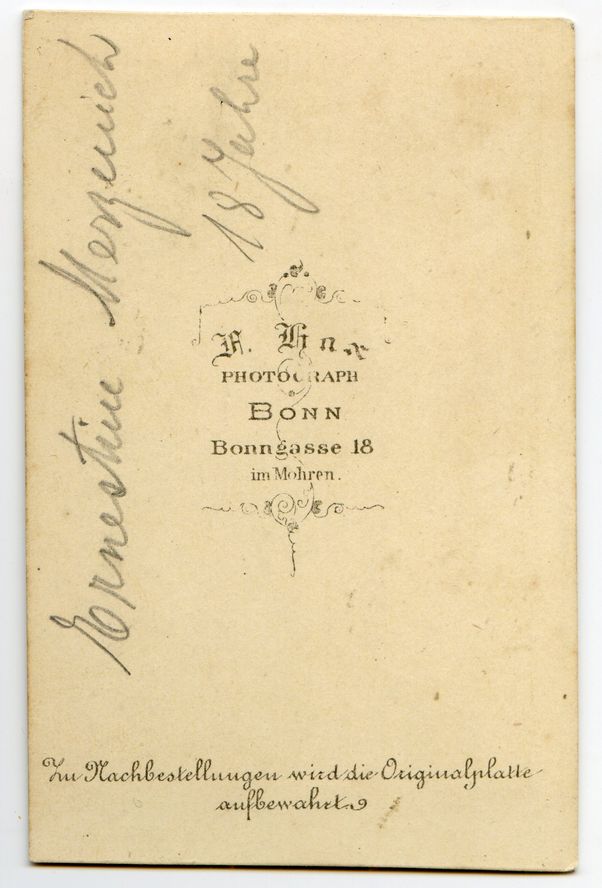 Ernestine Merzenich
18 Jahre
F.
PHOTOGRAPH
BONN
Bonngasse 18
im Mohren.
Zu Nachbestellungen wird die Originalplatte
aufbewahrt